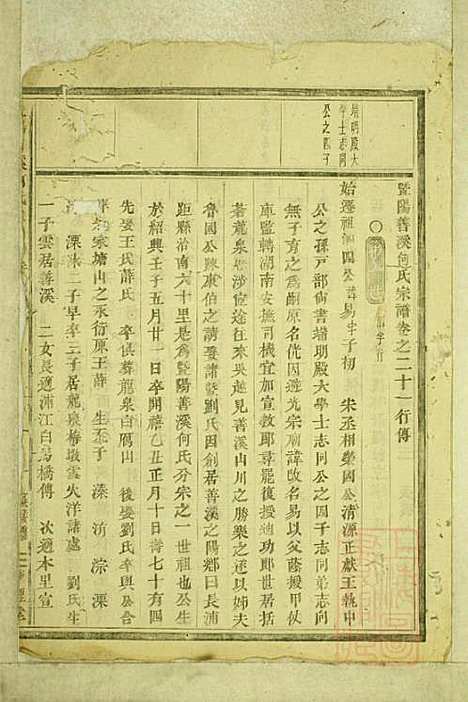 暨陽善溪何氏宗譜卷之二十一行傳
端明殿大
學士志同
公之四子
始遷祖 四公 易字子初 宋丞相榮國公清源正獻王執中
公之孫戶部尚書端明殿大學士志同公之四子志同弟志向
無子育公為嗣原名侊因避光宗廟諱改名易以父蔭授甲仗
庫監轉湖南安撫司機宜加宣教郎尋罷復授迪功郎世居括
蒼龍泉 涉宦途往來吳越見善溪山川之勝樂之遂以姊夫
魯國公陳康伯之請娶諸暨劉氏因創居善溪之陽鄉曰長浦
距縣治南六十里是為暨陽善溪何氏分宗之一世祖也公生
於紹興壬子五月廿一日卒開禧乙丑正月十日壽七十有四
先娶王氏薛氏 卒俱葬龍泉白雁山 後娶劉氏卒與公合
宋塘山之永衍原王薛 生五子 溱 洧 淙 溧
溧洙二子早卒三子居龍泉梅墩雲火洋諸處 劉氏生
一子雲居善溪 二女長適浦江白馬橋傅 次適本里宣